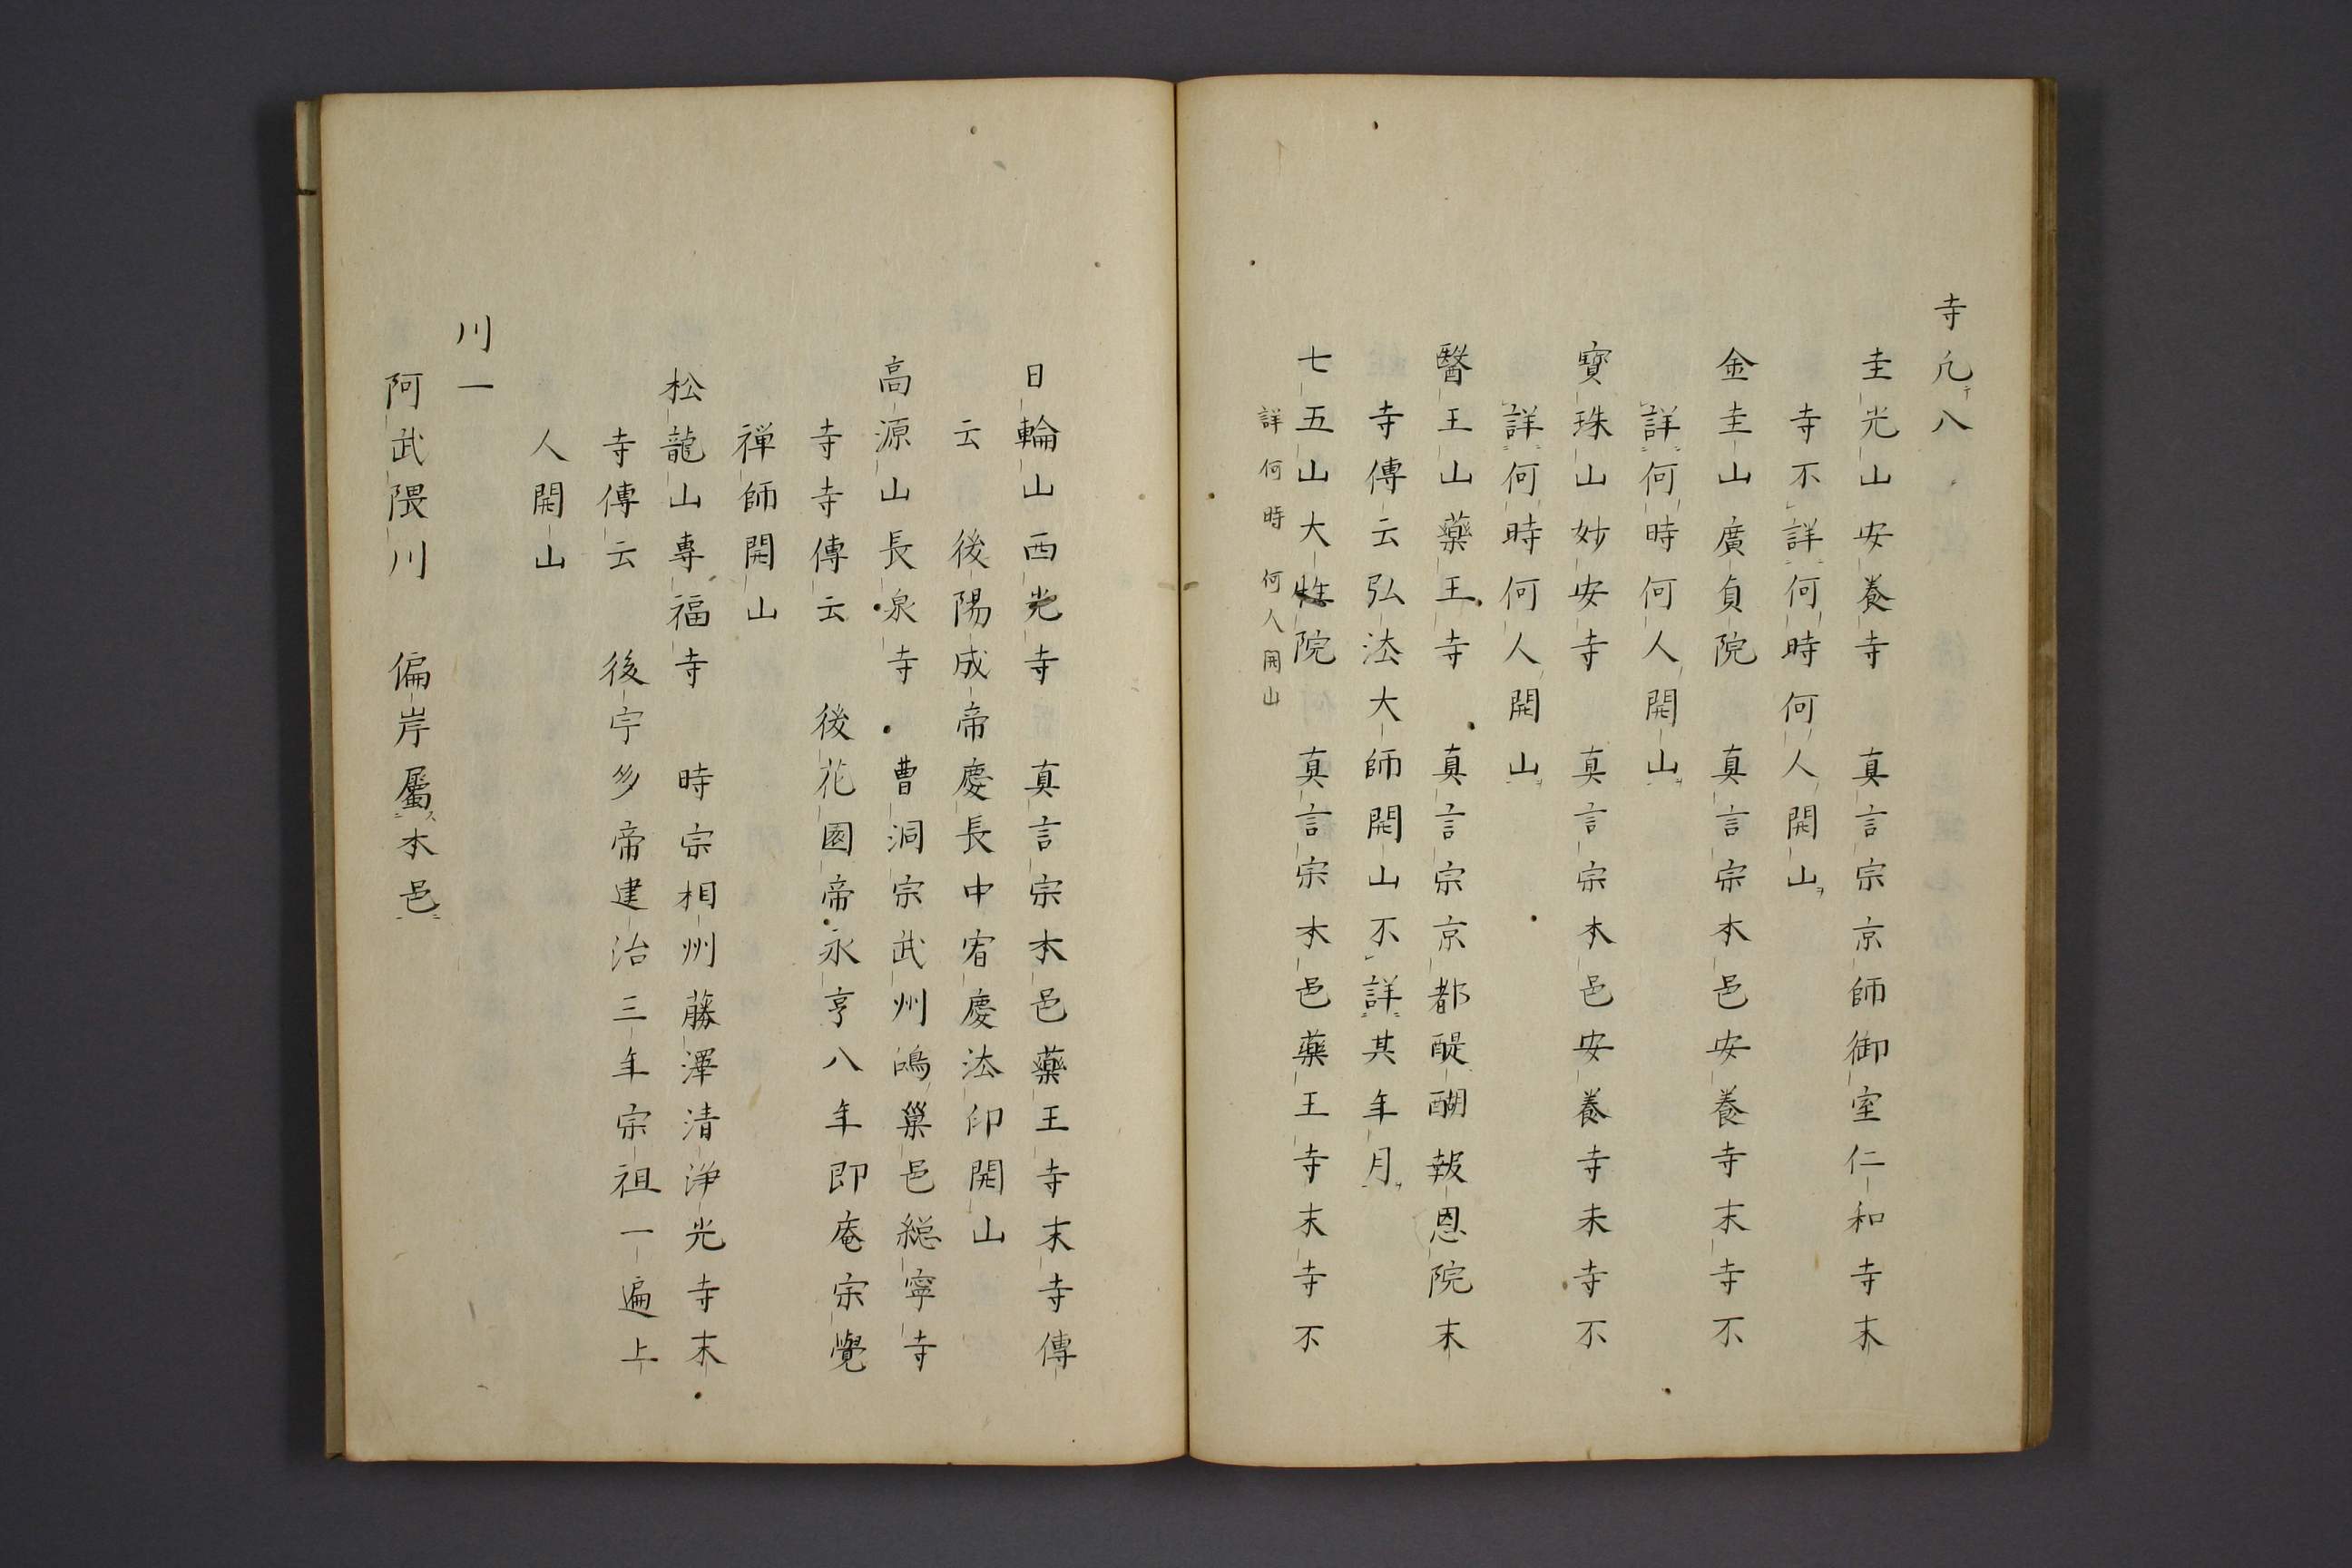 寺凡テ八
圭光山安養寺　真言宗京師御室仁和寺末
寺不詳何時何人開山ヲ
金圭山廣貞院　真言宗本邑安養寺末寺不
詳何時何人開山ヲ
寶珠山妙安寺　真言宗本邑安養寺末寺不
詳何時何人開山ヲ
醫王山藥王寺　真言宗京都醍醐報恩院末
寺傳云弘法大師開山不詳其年月ヲ
七五山大性院　真言宗本邑藥王寺末寺不
詳何時何人開山
日輪山西光寺　真言宗本邑藥王寺末寺傳
云　後陽成帝慶長中宥慶法印開山
高源山長泉寺　曹洞宗武州鴻巣邑総寧寺
寺寺傳云　後花園帝永亨八年即庵宗覺
禅師開山
松龍山專福寺　時宗相州藤澤清浄光寺末
寺傳云　後宇多帝建治三年宗祖一遍上
人開山
川一
阿武隈川　偏岸屬ス本邑ニ